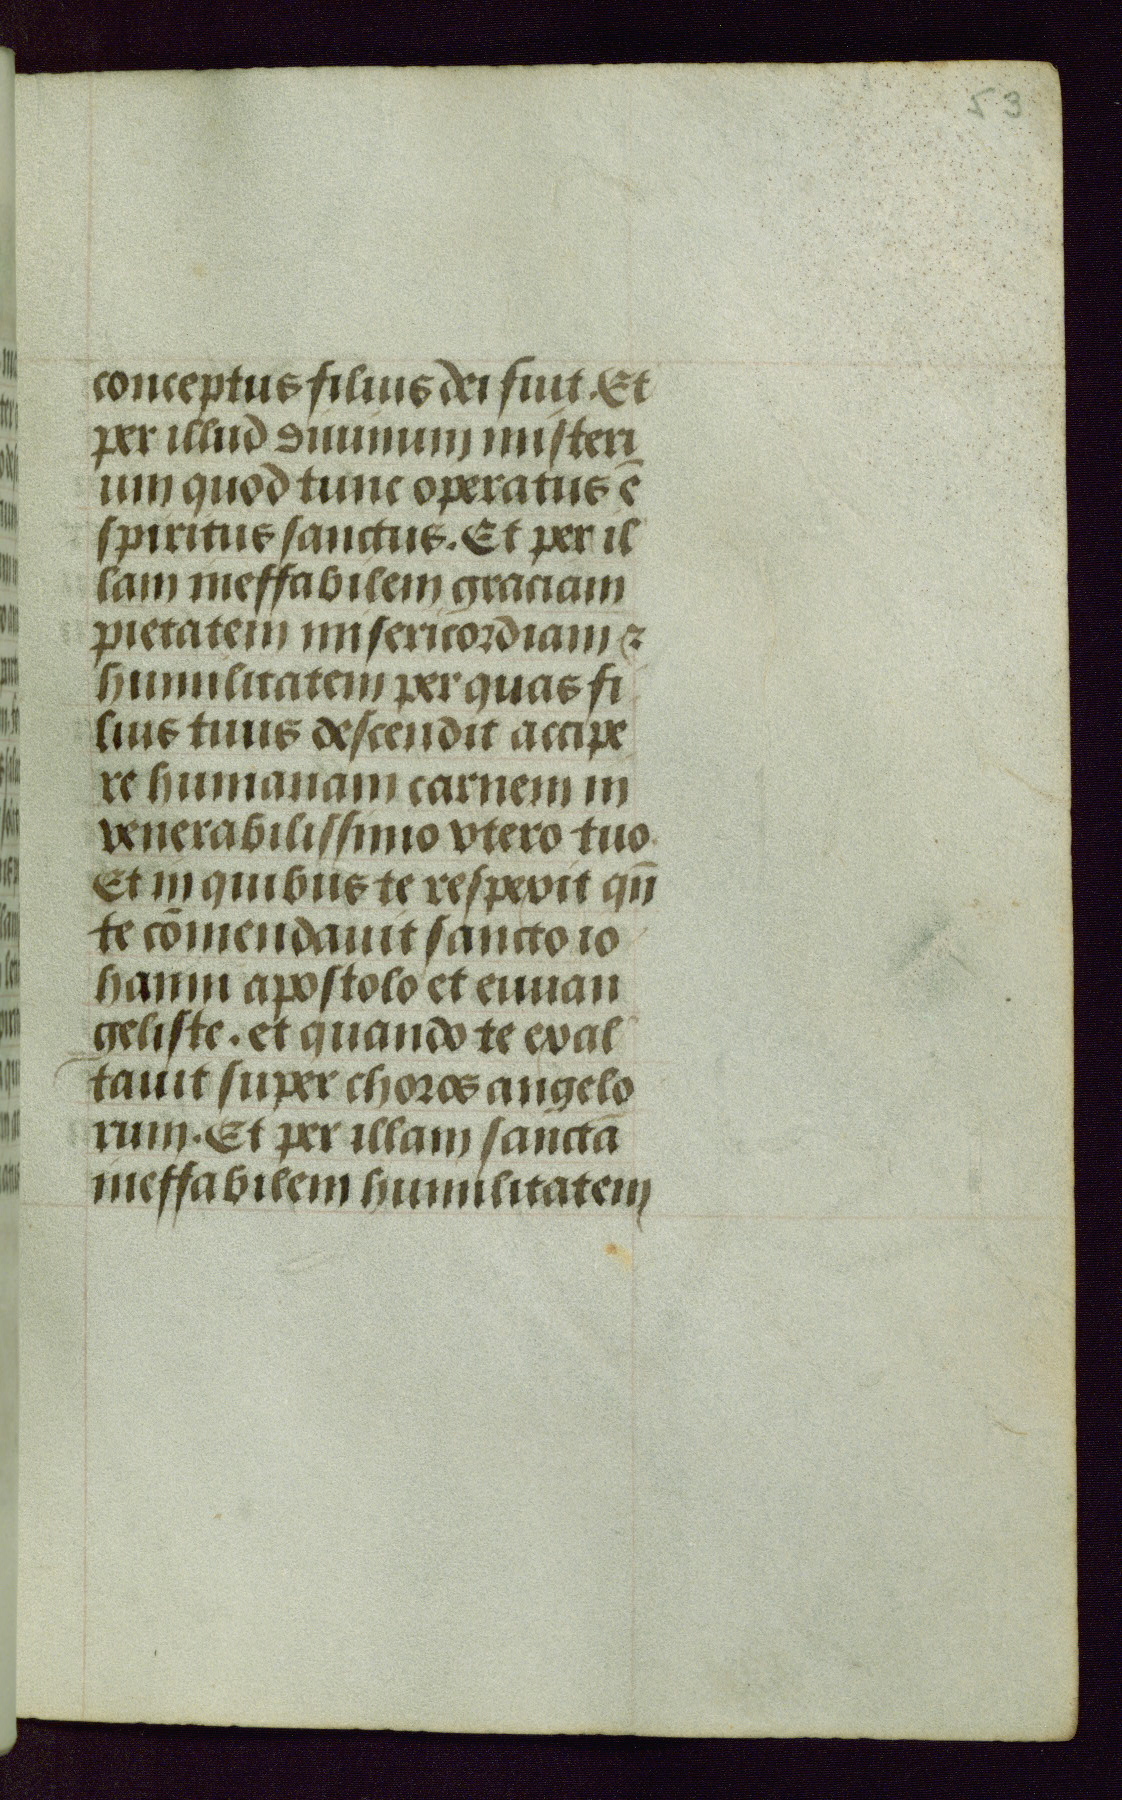 53
conceptus filius dei fuit. Et
per illud diuinum misteri
um quod tunc operatus ē
spiritus sanctus. Et per il
lam ineffabilem graciam
pietatem misericordiam ⁊
humilitatem per quas fi
lius tuus descendit accipe
re humanam carnem in
venerabilissimo vtero tuo.
Et in quibus te respexit qn̄
te cōmendauit sancto io
hanni apostolo et euuan
geliste. et quando te exal
tauit super choros angelo
rum. Et per illam sanctā
ineffabilem humilitatem